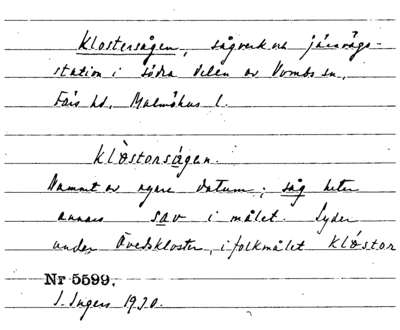 Klostersågen, sågverk och järnvägs-
station i södra delen av Vombs sn,
Färs hd, Malmöhus l.
klòstorságen.
Namnet av yngre datum; såg heter
annars sav i målet. Lyder
under Övedskloster, i folkmålet klóstor
Nr 5599.
I. Ingers 1930.